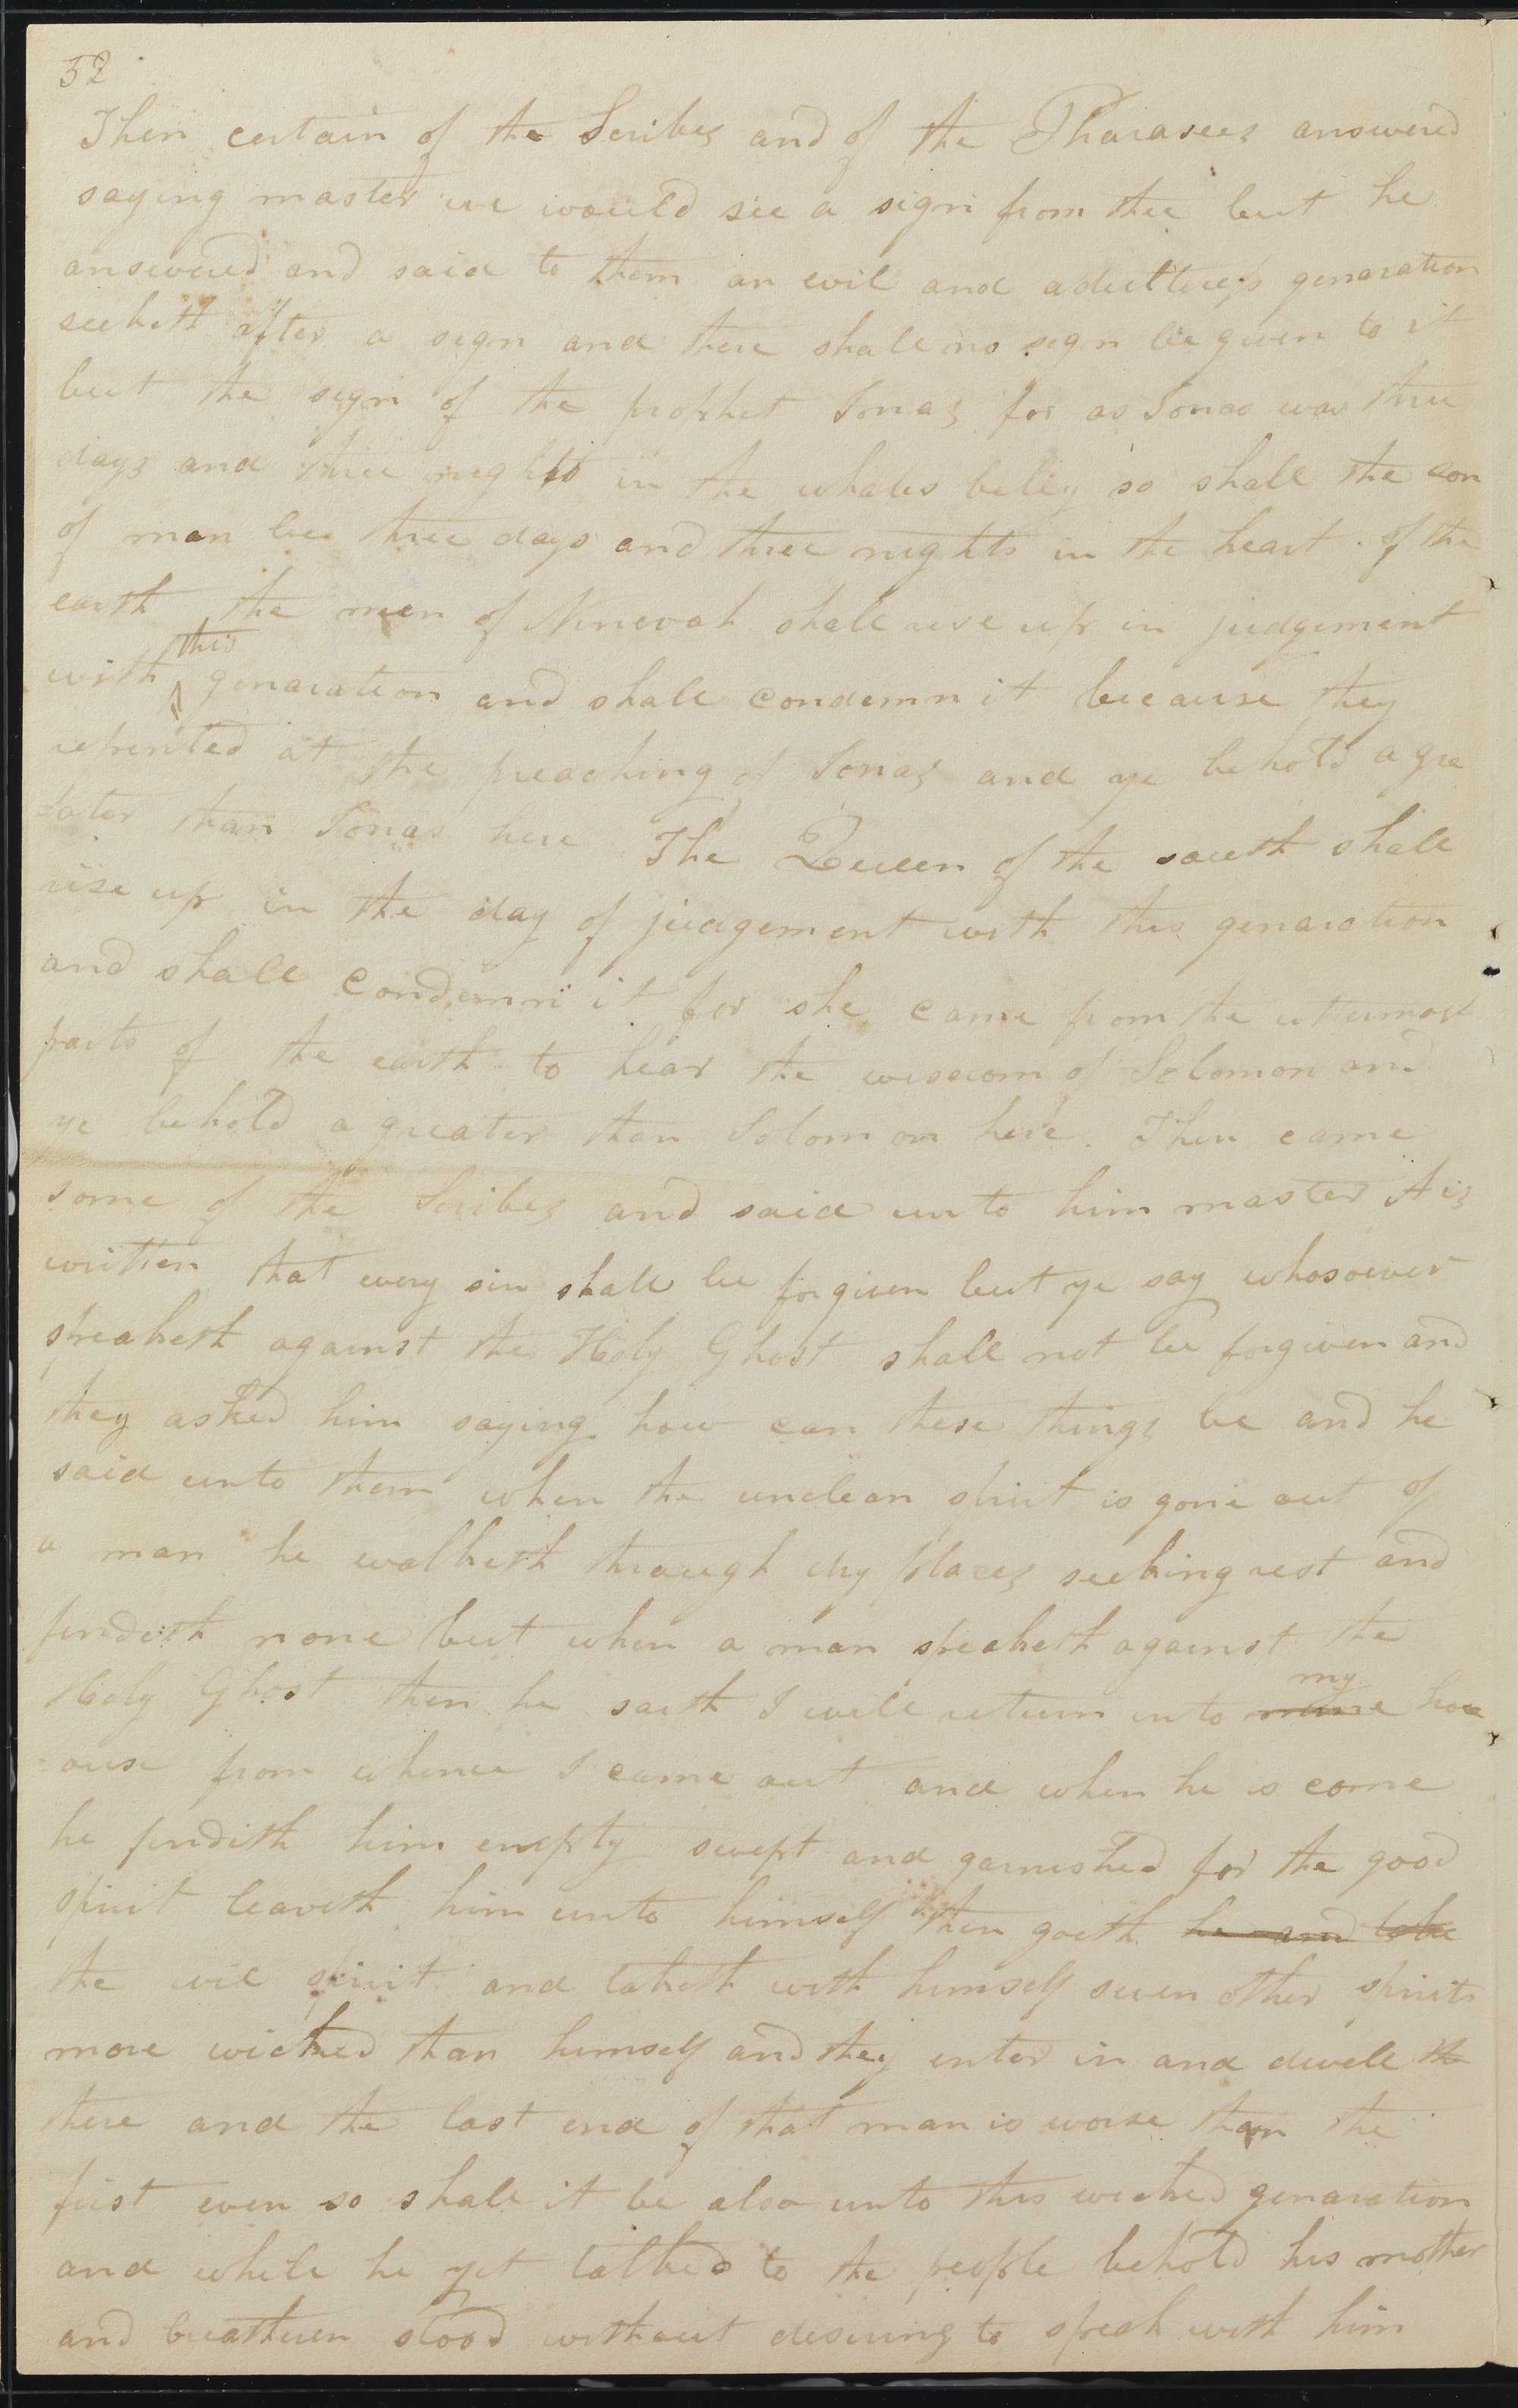 32
Then certain of the Scribes and of the Pharasees answered
saying master we would see a sign from thee but he
answered and said to them an evil and adultteress genaration
seeketh after a sign and there shall no sign be given to it
but the sign of the prophet Jonas for as Jonas was three
days and three nights in the whales belley so shall the son
of man be three days and three nights in the heart of the
earth the men of Ninevah shall rise up in judgement
this
with genaration and shall condemn it because they
repented at the preaching of Jonas and ye behold a gre
-ater than Jonas here The Queen of the south shall
rise up in the day of judgement with this genaration
and shall condemn it for she came from the uttermost
parts of the earth to hear the wisdom of Solomon and
ye behold a greater than Solomon here. Then came
some of the Scribes and said unto him master it is
written that every sin shall be forgiven but ye say whosoever
speaketh against the Holy Ghost shall not be forgiven and
they asked him saying how can these things be and he
said unto them when the unclean spirit is gone out of
a man he walketh through dry places seeking rest and
findeth none but when a man speaketh against the
my
Holy Ghost then he saith I will return into mine hou
-ouse from whence I came out and when he is come
he findith him empty swept and garnished for the good
spirit leaveth him unto himself then goeth he and take
the evil spirit and taketh with himself seven other spirits
more wicked than himself and they enter in and dwell th
there and the last end of that man is worse than the
first even so shall it be also unto this wicked genaration
and while he yet talked to the people behold his mother
and breatheren stood without desiring to speak with him